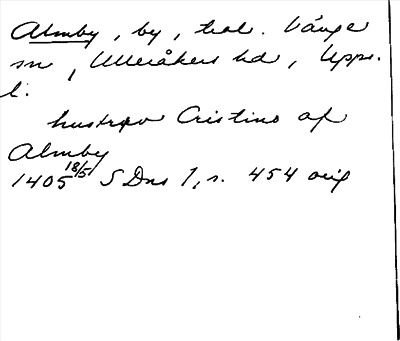 Almby, by, tal. Vänge
sn, Ulleråkers hd, Upps.
l.
hustrov Cristino af
Almby
1405 18/5 SDns 1, s. 454 orig